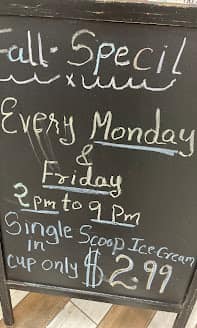 Fall-Specil
Every Monday
&
Friday
2pm to 9 Pm
Single Scoop Ice Cream
in
cup only $2.99